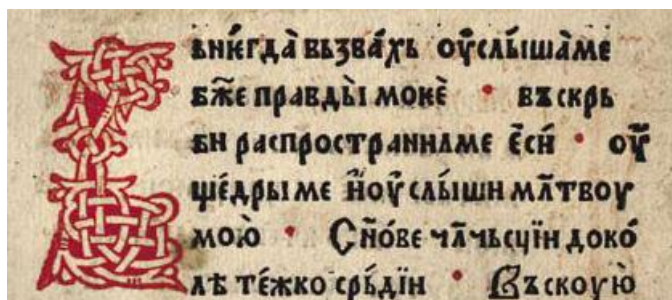 внꙗ́гда̀ възва́хь оу҆слы́ша̀ме
бж҃е правды̀ моѥ̀ • въ скрь
би распространиламе ѐси́ • оу҆
ще́дрыме и҆оу҆слы́ши мл҃твоу
мою̀ • Сн҃о́ве чл҃чьсцїи доко́
лѣ те́жко ср҃ьдїи • Въскоую̀